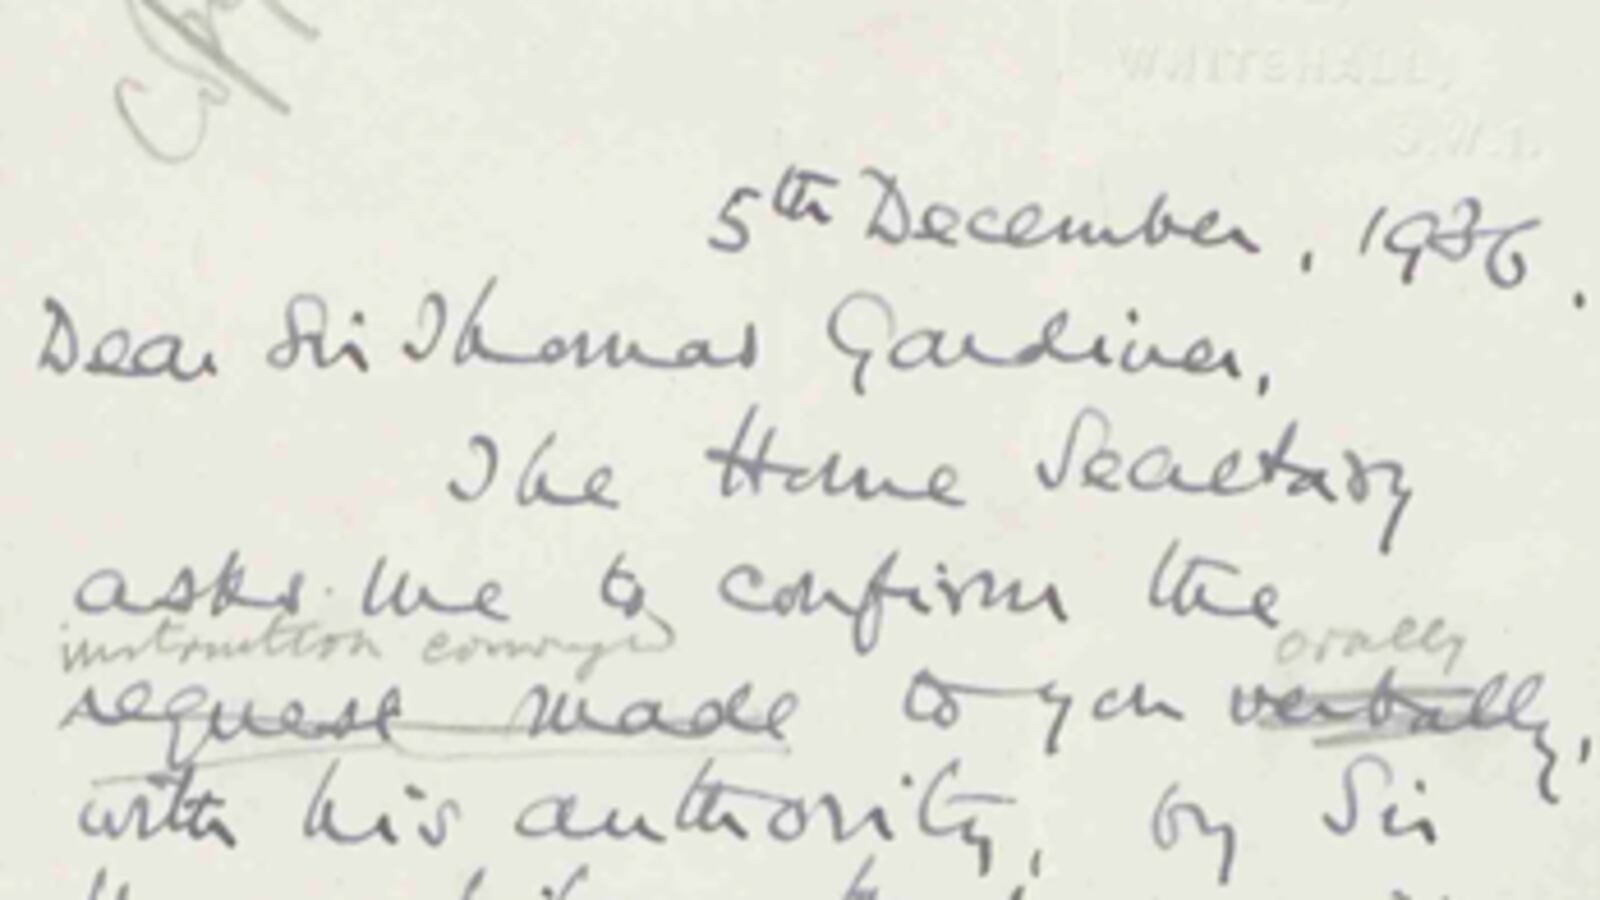 WHITEHALL,
S.W.1.
5th December, 1936.
Dear Sir Thomas Gardiner,
The Home Secretary
asks me to confirm the
instruction conveyed orally
request made to you verbally,
with his authority, by Sir